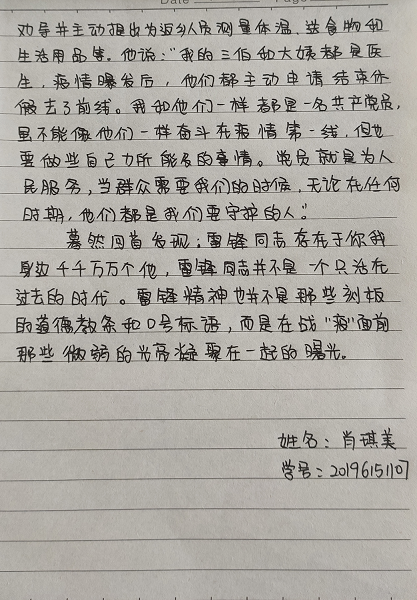 劝导并主动提出为返乡人员测量体温、送食物和
生活用品等。他说:“我的三伯和大姨都是医
生，疫情曝发后，他们都主动申请结束休
假去了前线。我和他们一样都是一名共产党员，
虽不能像他们一样奋斗在疫情第一线，但也
要做些自己力所能及的事情。党员就是为人
民服务，当群众需要我们的时候，无论在任何
时期，他们都是我们要守护的人。”
蓦然回首发现：雷锋同志存在于你我
身边千千万万个他，雷锋同志并不是一个只活在
过去的时代。雷锋精神也并不是那些刻板
的道德教条和口号标语，而是在战“疫”面前
那些微弱的光芒凝聚在一起的曙光。
姓名：肖琪美
学号：2019615110